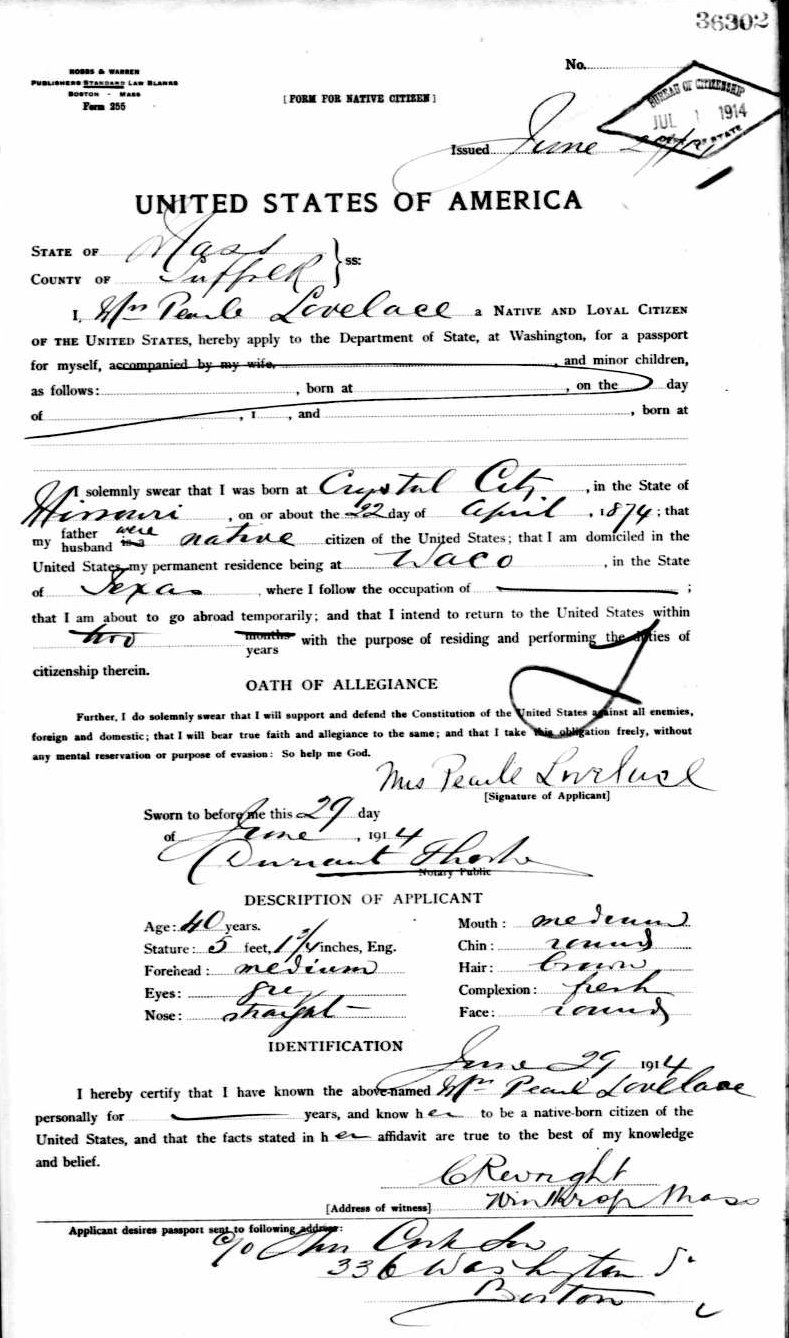 36302
HOBBS & WARREN
PUBLISHERS STANDARD LAW BLANKS
BOSTON - MASS
Form 255
No.
[FORM FOR NATIVE CITIZEN]
BUREAU OF CITIZENSHIP
JUL 1 1914
DEPT OF STATE
Issued June
UNITED STATES OF AMERICA
STATE OF Mass
COUNTY OF Suffolk } ss:
I, Mrs Pearle Lovelace a NATIVE AND LOYAL CITIZEN
OF THE UNITED STATES, hereby apply to the Department of State, at Washington, for a passport
for myself, accompanied by my wife, , and minor children,
as follows: , born at , on the day
of , 1 , and , born at
I solemnly swear that I was born at Crystal City , in the State of
Missouri , on or about the 22 day of April , 1874; that
my father husband were is a native citizen of the United States; that I am domiciled in the
United States, my permanent residence being at Waco , in the State
of Texas , where I follow the occupation of ;
that I am about to go abroad temporarily; and that I intend to return to the United States within
two months years with the purpose of residing and performing the duties of
citizenship therein.
OATH OF ALLEGIANCE
Further, I do solemnly swear that I will support and defend the Constitution of the United States against all enemies,
foreign and domestic; that I will bear true faith and allegiance to the same; and that I take this obligation freely, without
any mental reservation or purpose of evasion: So help me God.
Mrs Pearle Lovelace
[Signature of Applicant]
Sworn to before me this 29 day
of June , 1914
Notary Public
DESCRIPTION OF APPLICANT
Age: 40 years.
Stature: 5 feet, 1 3/4 inches, Eng.
Forehead: medium
Eyes: grey
Nose: straight
Mouth: medium
Chin: round
Hair: Brown
Complexion: fresh
Face: round
IDENTIFICATION
June 29 1914
I hereby certify that I have known the above-named Mrs Pearle Lovelace
personally for years, and know her to be a native-born citizen of the
United States, and that the facts stated in her affidavit are true to the best of my knowledge
and belief.
Winthrop Mass
[Address of witness]
Applicant desires passport sent to following address:
c/o Thos Cook & Son
336 Washington St
Boston